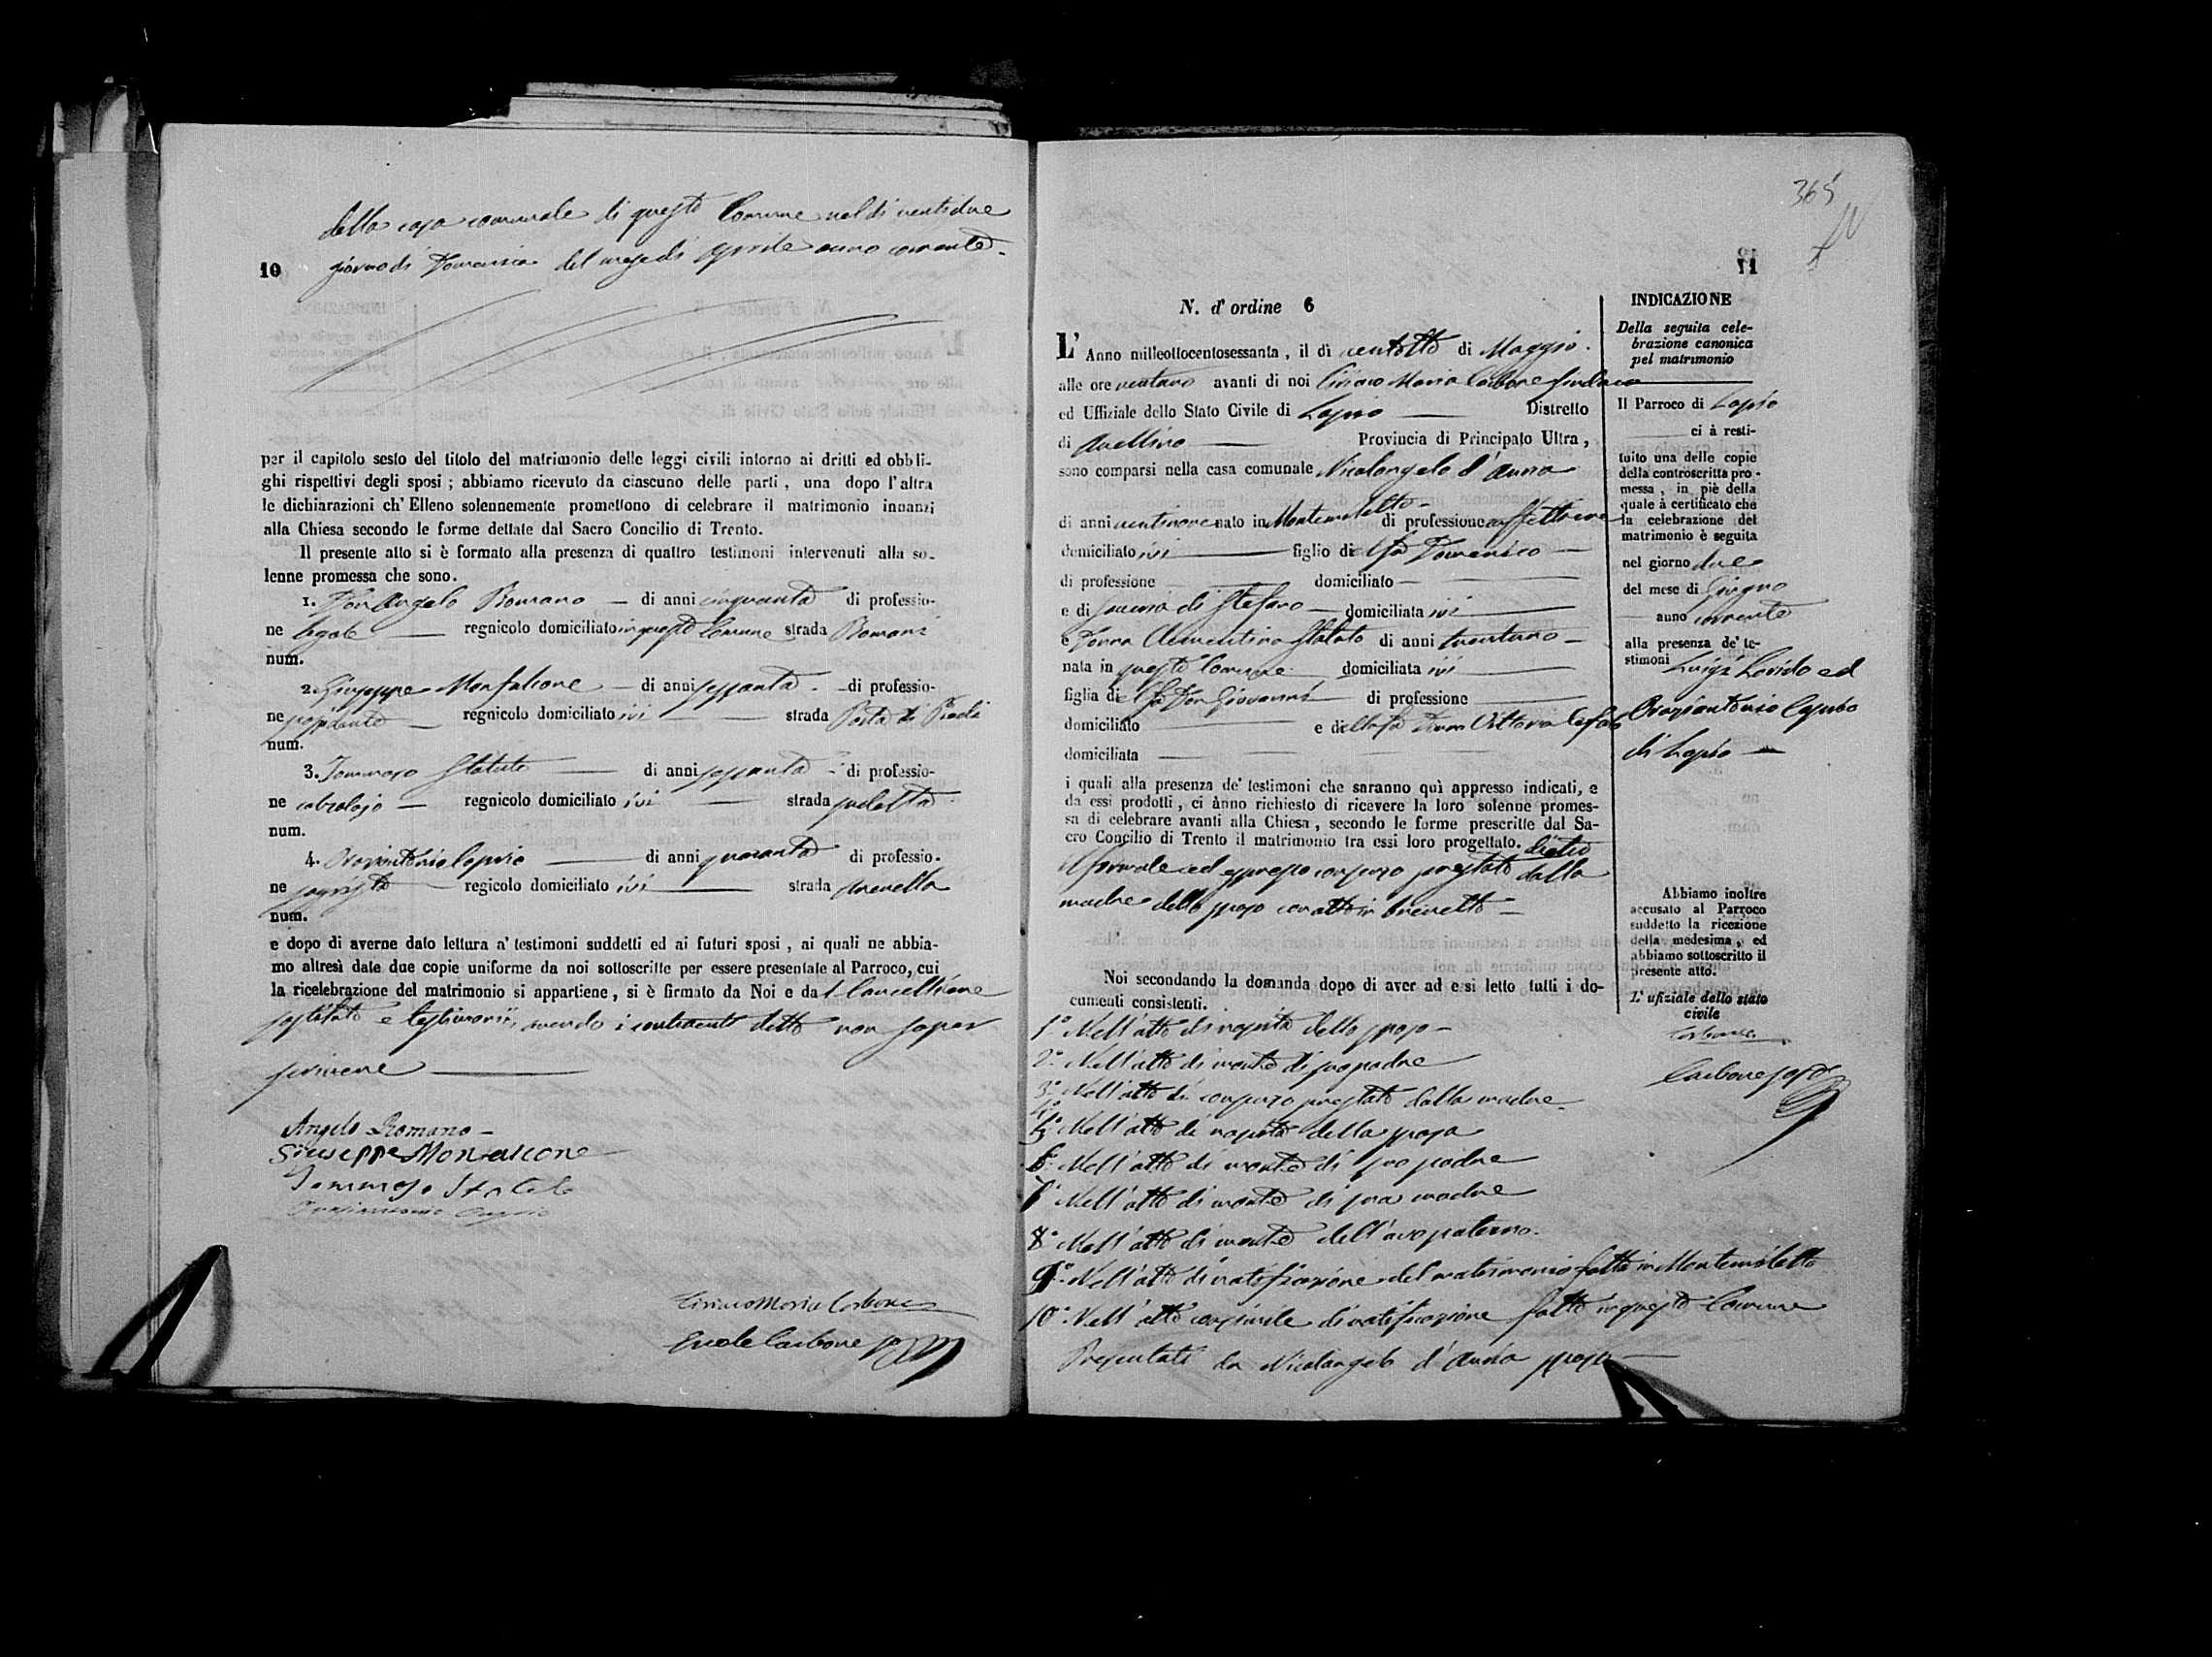 della casa comunale di questo Comune nel di ventidue
10 giorno di Domenica del mese di Aprile anno corrente.
per il capitolo sesto del titolo del matrimonio delle leggi civili intorno ai dritti ed obbli-
ghi rispettivi degli sposi ; abbiamo ricevuto da ciascuno delle parti , una dopo l'altra
le dichiarazioni ch' Elleno solennemente promettono di celebrare il matrimonio innanzi
alla Chiesa secondo le forme dettate dal Sacro Concilio di Trento.
Il presente atto si è formato alla presenza di quattro testimoni intervenuti alla so-
lenne promessa che sono.
1. Don Angelo Romano — di anni cinquanta di professio-
ne legale — regnicolo domiciliato in questo Comune strada Romani
num.
2. Giuseppe Monfalcone — di anni sessanta - di professio-
ne possidente — regnicolo domiciliato ivi — strada Porta di Piedi
num.
3. Tommaso Statuto — di anni sessanta - di professio-
ne calzolajo — regnicolo domiciliato ivi — strada
num.
4. Oraziantonio — di anni quaranta di professio-
ne — regicolo domiciliato ivi — strada
num.
e dopo di averne dato lettura a' testimoni suddetti ed ai futuri sposi , ai quali ne abbia-
mo altresì date due copie uniforme da noi sottoscritte per essere presentate al Parroco, cui
la ricelebrazione del matrimonio si appartiene , si è firmato da Noi e dal Cancelliere
sostituto e testimonii, avendo i contraenti detto non saper
scrivere —
Angelo Romano -
Giuseppe Monfalcone
Tommaso Statuto
Ciriaco Maria Carbone
Ercole Carbone
365
11
N. d' ordine 6
L' Anno milleottocentosessanta , il dì ventotto di Maggio.
alle ore ventuno avanti di noi Ciriaco Maria Carbone Sindaco
ed Uffiziale dello Stato Civile di Lapio — Distretto
di Avellino — Provincia di Principato Ultra ,
sono comparsi nella casa comunale Nicolangelo d'Anna
di anni ventinove nato in Montemiletto di professione
domiciliato ivi — figlio del fu Domenico —
di professione — domiciliato —
e di di Stefano — domiciliata ivi —
e Donna Clementina Statuto di anni trentuno —
nata in questo Comune domiciliata ivi —
figlia del fu Don Giovanni — di professione —
domiciliato — e della fu Donna Vittoria
domiciliata —
i quali alla presenza de' testimoni che saranno quì appresso indicati, e
da essi prodotti , ci ànno richiesto di ricevere la loro solenne promes-
sa di celebrare avanti alla Chiesa , secondo le forme prescritte dal Sa-
cro Concilio di Trento il matrimonio tra essi loro progettato. dietro
formale ed espresso consenso prestato dalla
madre dello sposo con atto in brevetto —
Noi secondando la domanda dopo di aver ad essi letto tutti i do-
cumenti consistenti.
1° Nell'atto di nascita dello sposo -
2° Nell'atto di morte di suo padre
3° Nell'atto di consenso prestato dalla madre.
5° Nell'atto di nascita della sposa
6° Nell'atto di morte di suo padre
7° Nell'atto di morte di sua madre
8° Nell'atto di morte dell'avo paterno.
9° Nell'atto di notificazione del matrimonio fatto in Montemiletto
10° Nell'atto consimile di notificazione fatto in questo Comune
Presentati da Nicolangelo d'Anna sposo —
INDICAZIONE
Della seguita cele-
brazione canonica
pel matrimonio
Il Parroco di Lapio
ci à resti-
tuito una delle copie
della controscritta pro-
messa , in piè della
quale à certificato che
la celebrazione del
matrimonio è seguita
nel giorno due
del mese di Giugno
anno corrente
alla presenza de' te-
stimoni Luigi ed
Oraziantonio
di Lapio —
Abbiamo inoltre
accusato al Parroco
suddetto la ricezione
della medesima , ed
abbiamo sottoscritto il
presente atto.
L' ufiziale dello stato
civile
Carbone
Carbone